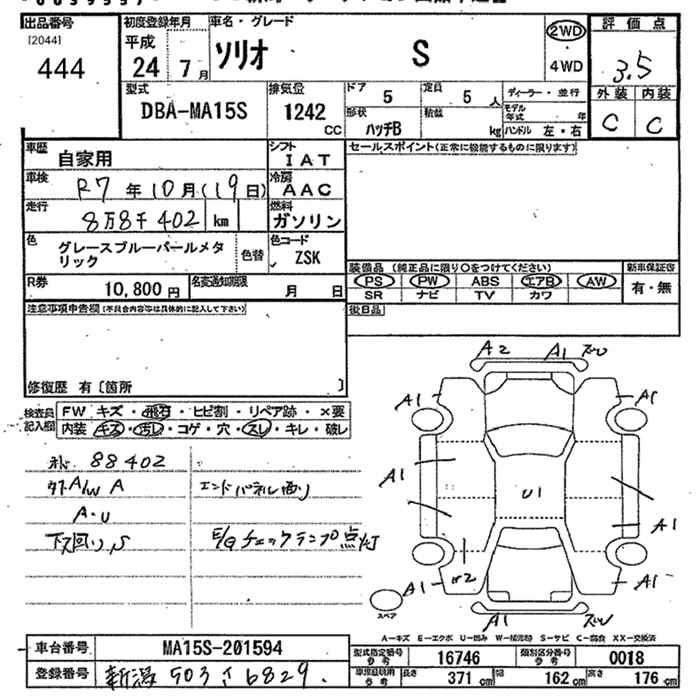 出品番号
[2044]
444
初度登録年月
平成
24 7月
車名・グレード
ソリオ S
2WD
・4WD
評価点
3.5
外装 内装
C C
型式
DBA-MA15S
排気位
1242
CC
ドア
5
定員
5 人
形状
ハッチB
積載
kg
ディーラー・並行
モデル年式 年
ハンドル 左・右
車歴
自家用
シフト
IAT
車検
R7年10月(19日)
冷房
AAC
走行
8万8千402 km
燃料
ガソリン
色
グレースブルーパールメタリック
色替
色コード
ZSK
R券
10,800円
名変通知期限
月 日
セールスポイント(正常に機能するものに限ります)
装備品 (純正品に限り○をつけてください)
PS PW ABS エアB AW
SR ナビ TV カワ
新車保証書
有・無
後日品
注意事項申告欄(不具合内容等は具体的に記入して下さい)
修復歴 有〔箇所 〕
検査員記入欄
FW キズ・飛石・ヒビ割・リペア跡・×要
内装 キズ・汚レ・コゲ・穴・スレ・キレ・破レ
88402
外A/W A
A・U
下回り S
エンドパネル曲り
E/Gチェックランプ点灯
A2 A1 ズレ
A1 A1
A1
U1
A1
W2
A1 A1
ズレ
スペア
A-キズ E-エクボ U-凹み W-補修跡 S-サビ C-腐食 XX-交換済
車台番号
MA15S-201594
登録番号
新潟 503 さ 6829
型式指定番号
参考
16746
類別区分番号
参考
0018
車検証用
参考
長さ 371 cm 幅 162 cm 高さ 176 cm